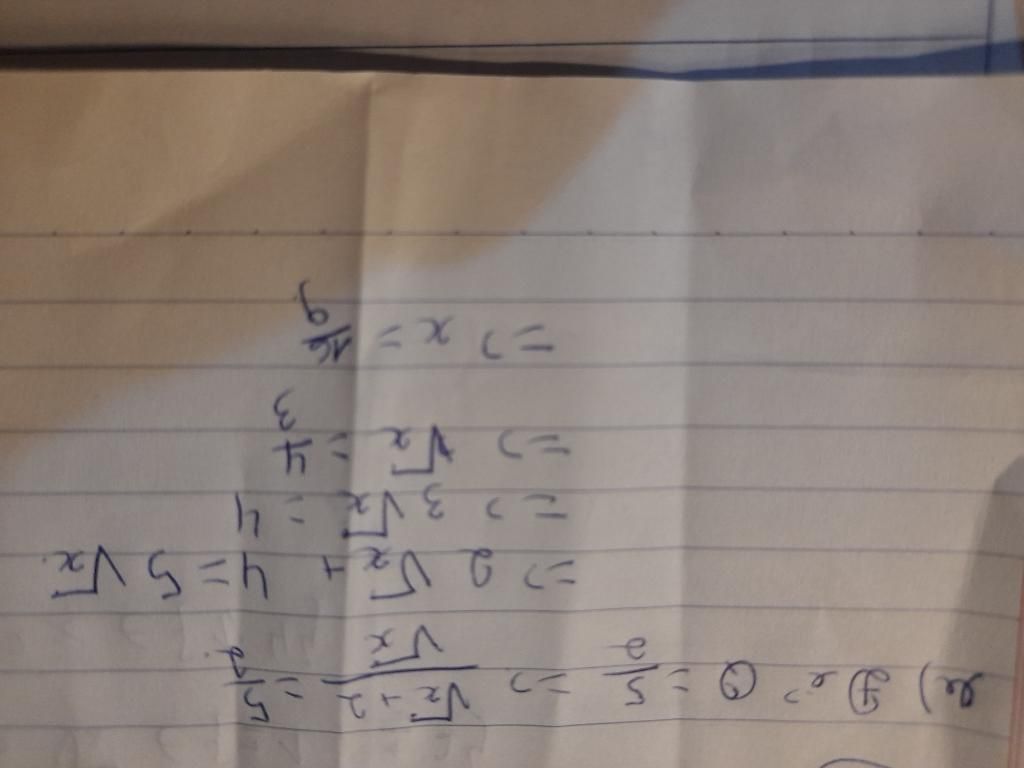 c) Để Q = 5/2 => (√x + 2)/√x = 5/2
=> 2√x + 4 = 5√x
=> 3√x = 4
=> √x = 4/3
=> x = 16/9